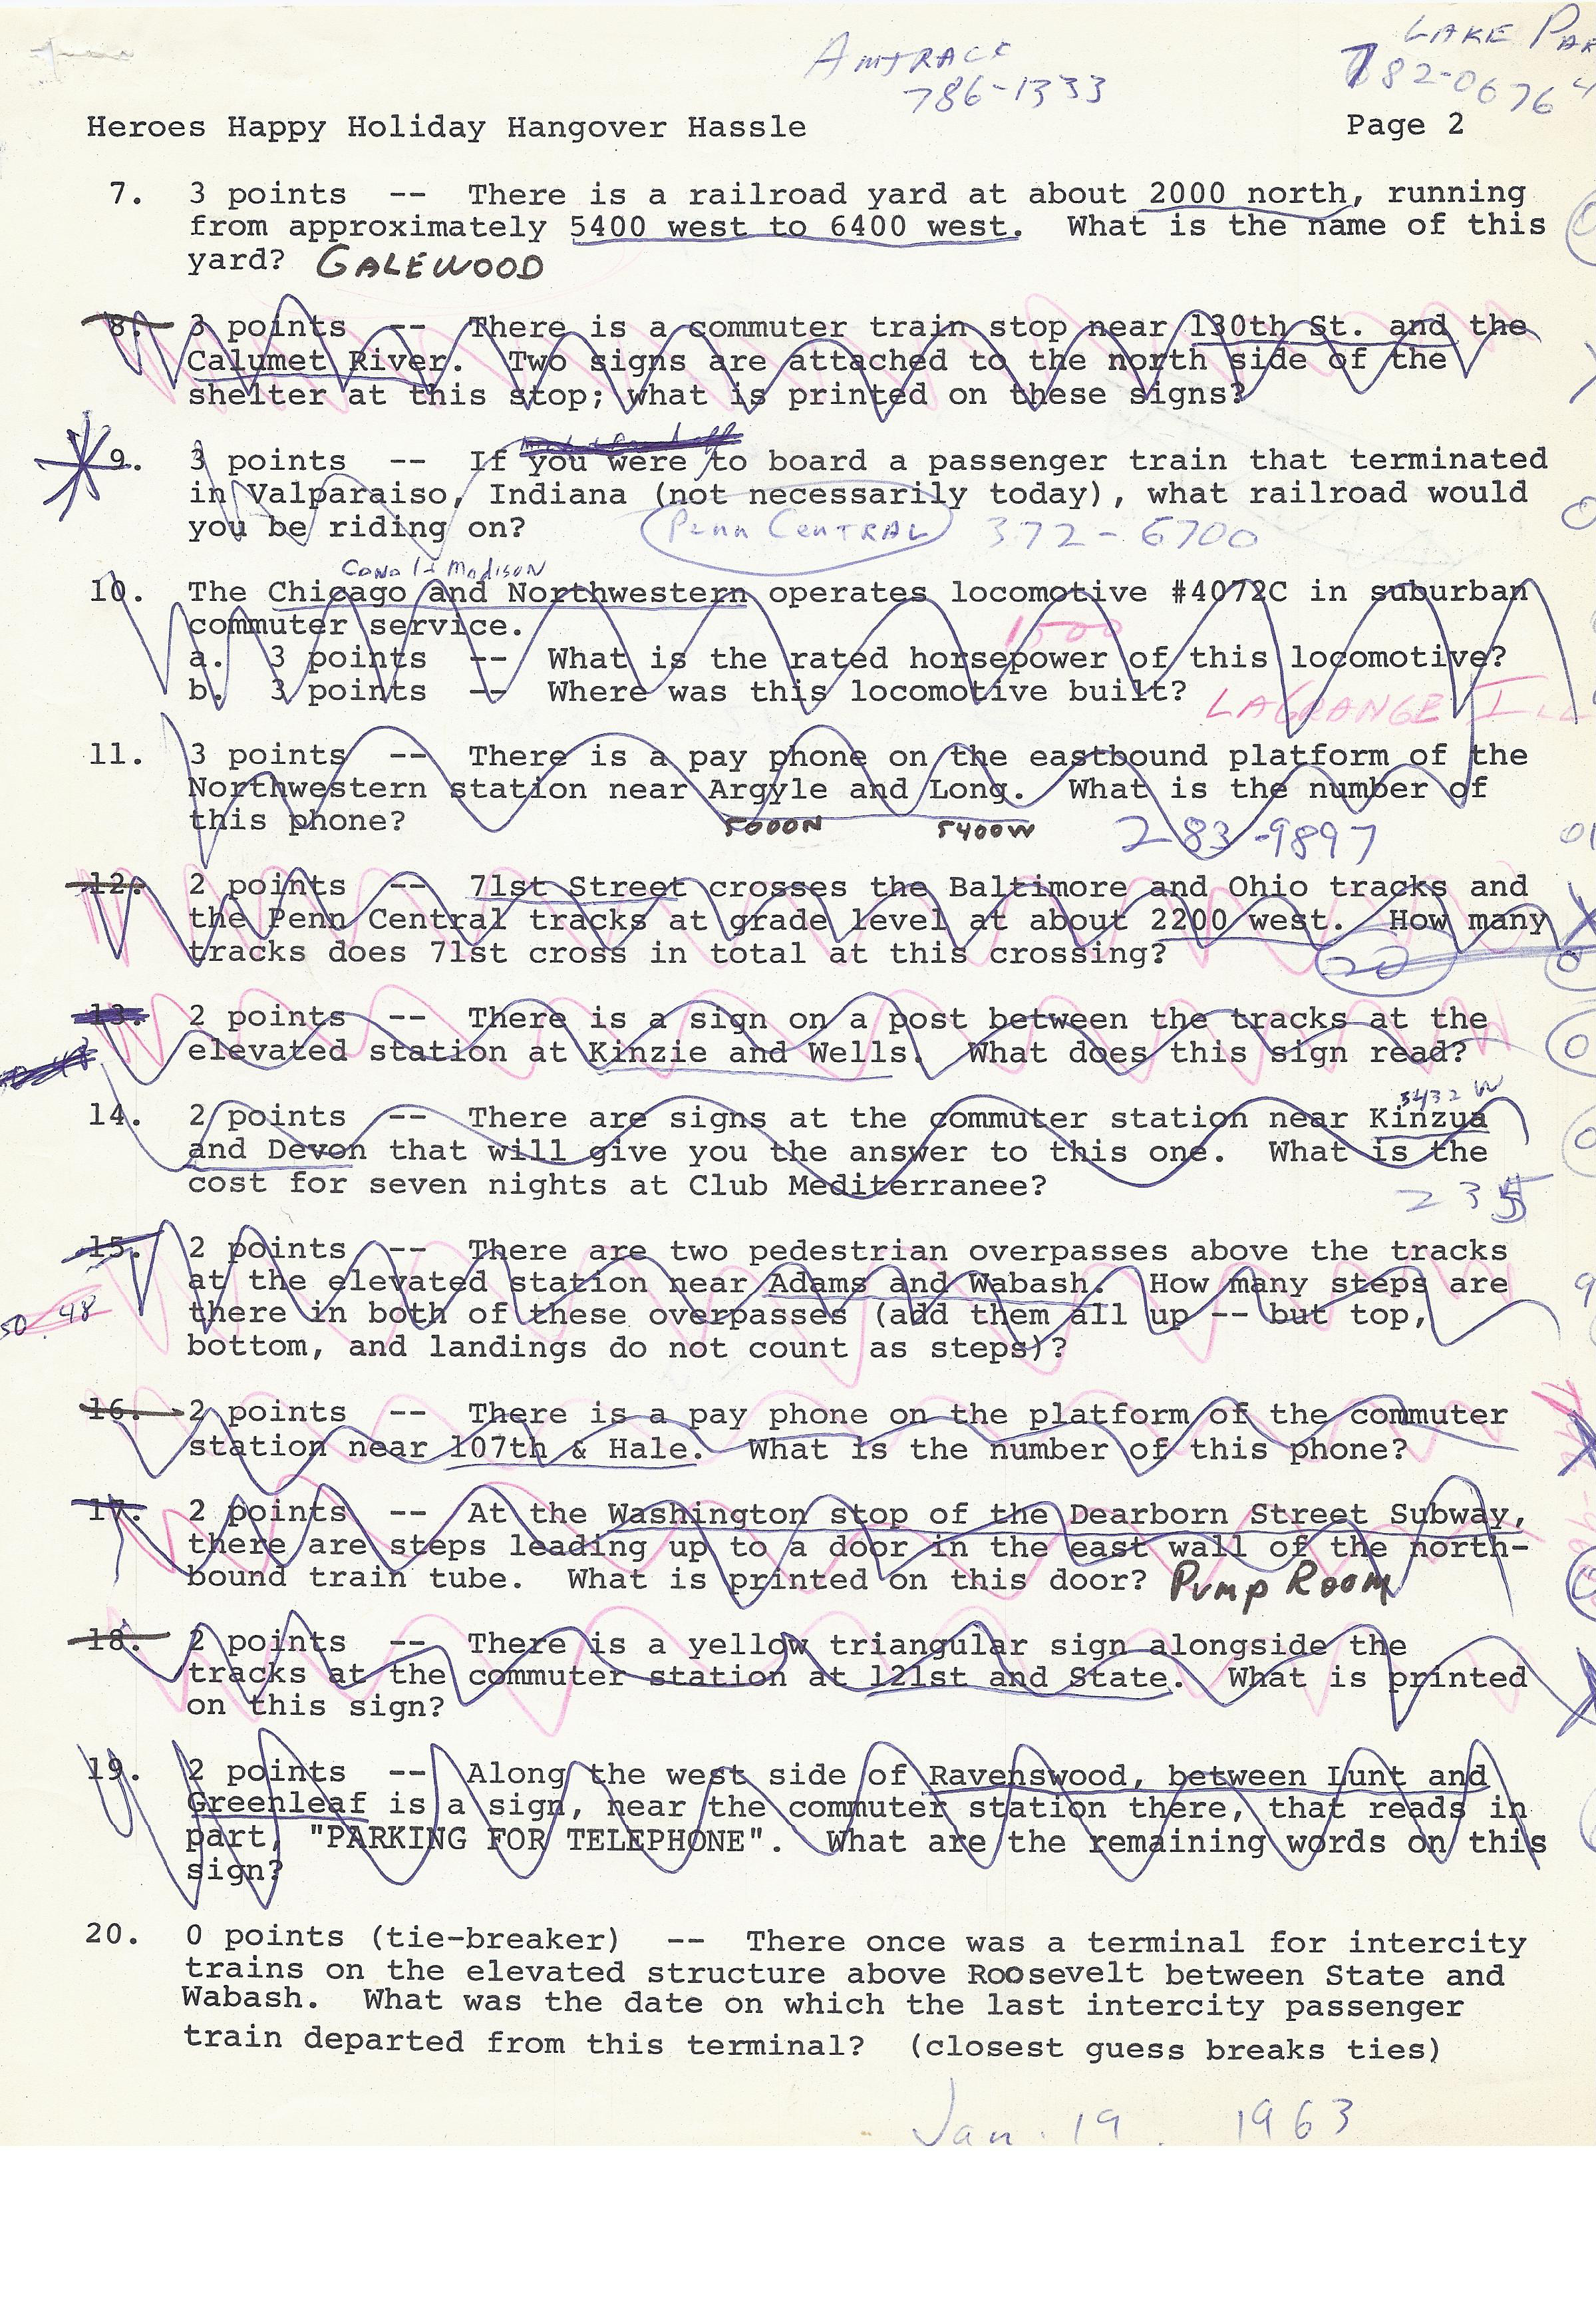 AMTRACK
786-1333
LAKE
782-0676
Heroes Happy Holiday Hangover Hassle Page 2
7. 3 points -- There is a railroad yard at about 2000 north, running
from approximately 5400 west to 6400 west. What is the name of this
yard? GALEWOOD
8. 3 points -- There is a commuter train stop near 130th St. and the
Calumet River. Two signs are attached to the north side of the
shelter at this stop; what is printed on these signs?
9. 3 points -- If you were to board a passenger train that terminated
in Valparaiso, Indiana (not necessarily today), what railroad would
you be riding on? PENN CENTRAL 372-6700
Canal & Madison
10. The Chicago and Northwestern operates locomotive #4072C in suburban
commuter service.
1500
a. 3 points -- What is the rated horsepower of this locomotive?
b. 3 points -- Where was this locomotive built? LAGRANGE ILL
11. 3 points -- There is a pay phone on the eastbound platform of the
Northwestern station near Argyle and Long. What is the number of
this phone? 5000N 5400W 283-9897
12. 2 points -- 71st Street crosses the Baltimore and Ohio tracks and
the Penn Central tracks at grade level at about 2200 west. How many
tracks does 71st cross in total at this crossing? 20
13. 2 points -- There is a sign on a post between the tracks at the
elevated station at Kinzie and Wells. What does this sign read?
5432 W
14. 2 points -- There are signs at the commuter station near Kinzua
and Devon that will give you the answer to this one. What is the
cost for seven nights at Club Mediterranee? 235
15. 2 points -- There are two pedestrian overpasses above the tracks
at the elevated station near Adams and Wabash. How many steps are
50. 48 there in both of these overpasses (add them all up -- but top,
bottom, and landings do not count as steps)?
16. 2 points -- There is a pay phone on the platform of the commuter
station near 107th & Hale. What is the number of this phone?
17. 2 points -- At the Washington stop of the Dearborn Street Subway,
there are steps leading up to a door in the east wall of the north-
bound train tube. What is printed on this door? Pump Room
18. 2 points -- There is a yellow triangular sign alongside the
tracks at the commuter station at 121st and State. What is printed
on this sign?
19. 2 points -- Along the west side of Ravenswood, between Lunt and
Greenleaf is a sign, near the commuter station there, that reads in
part, "PARKING FOR TELEPHONE". What are the remaining words on this
sign?
20. 0 points (tie-breaker) -- There once was a terminal for intercity
trains on the elevated structure above Roosevelt between State and
Wabash. What was the date on which the last intercity passenger
train departed from this terminal? (closest guess breaks ties)
Jan. 19. 1963